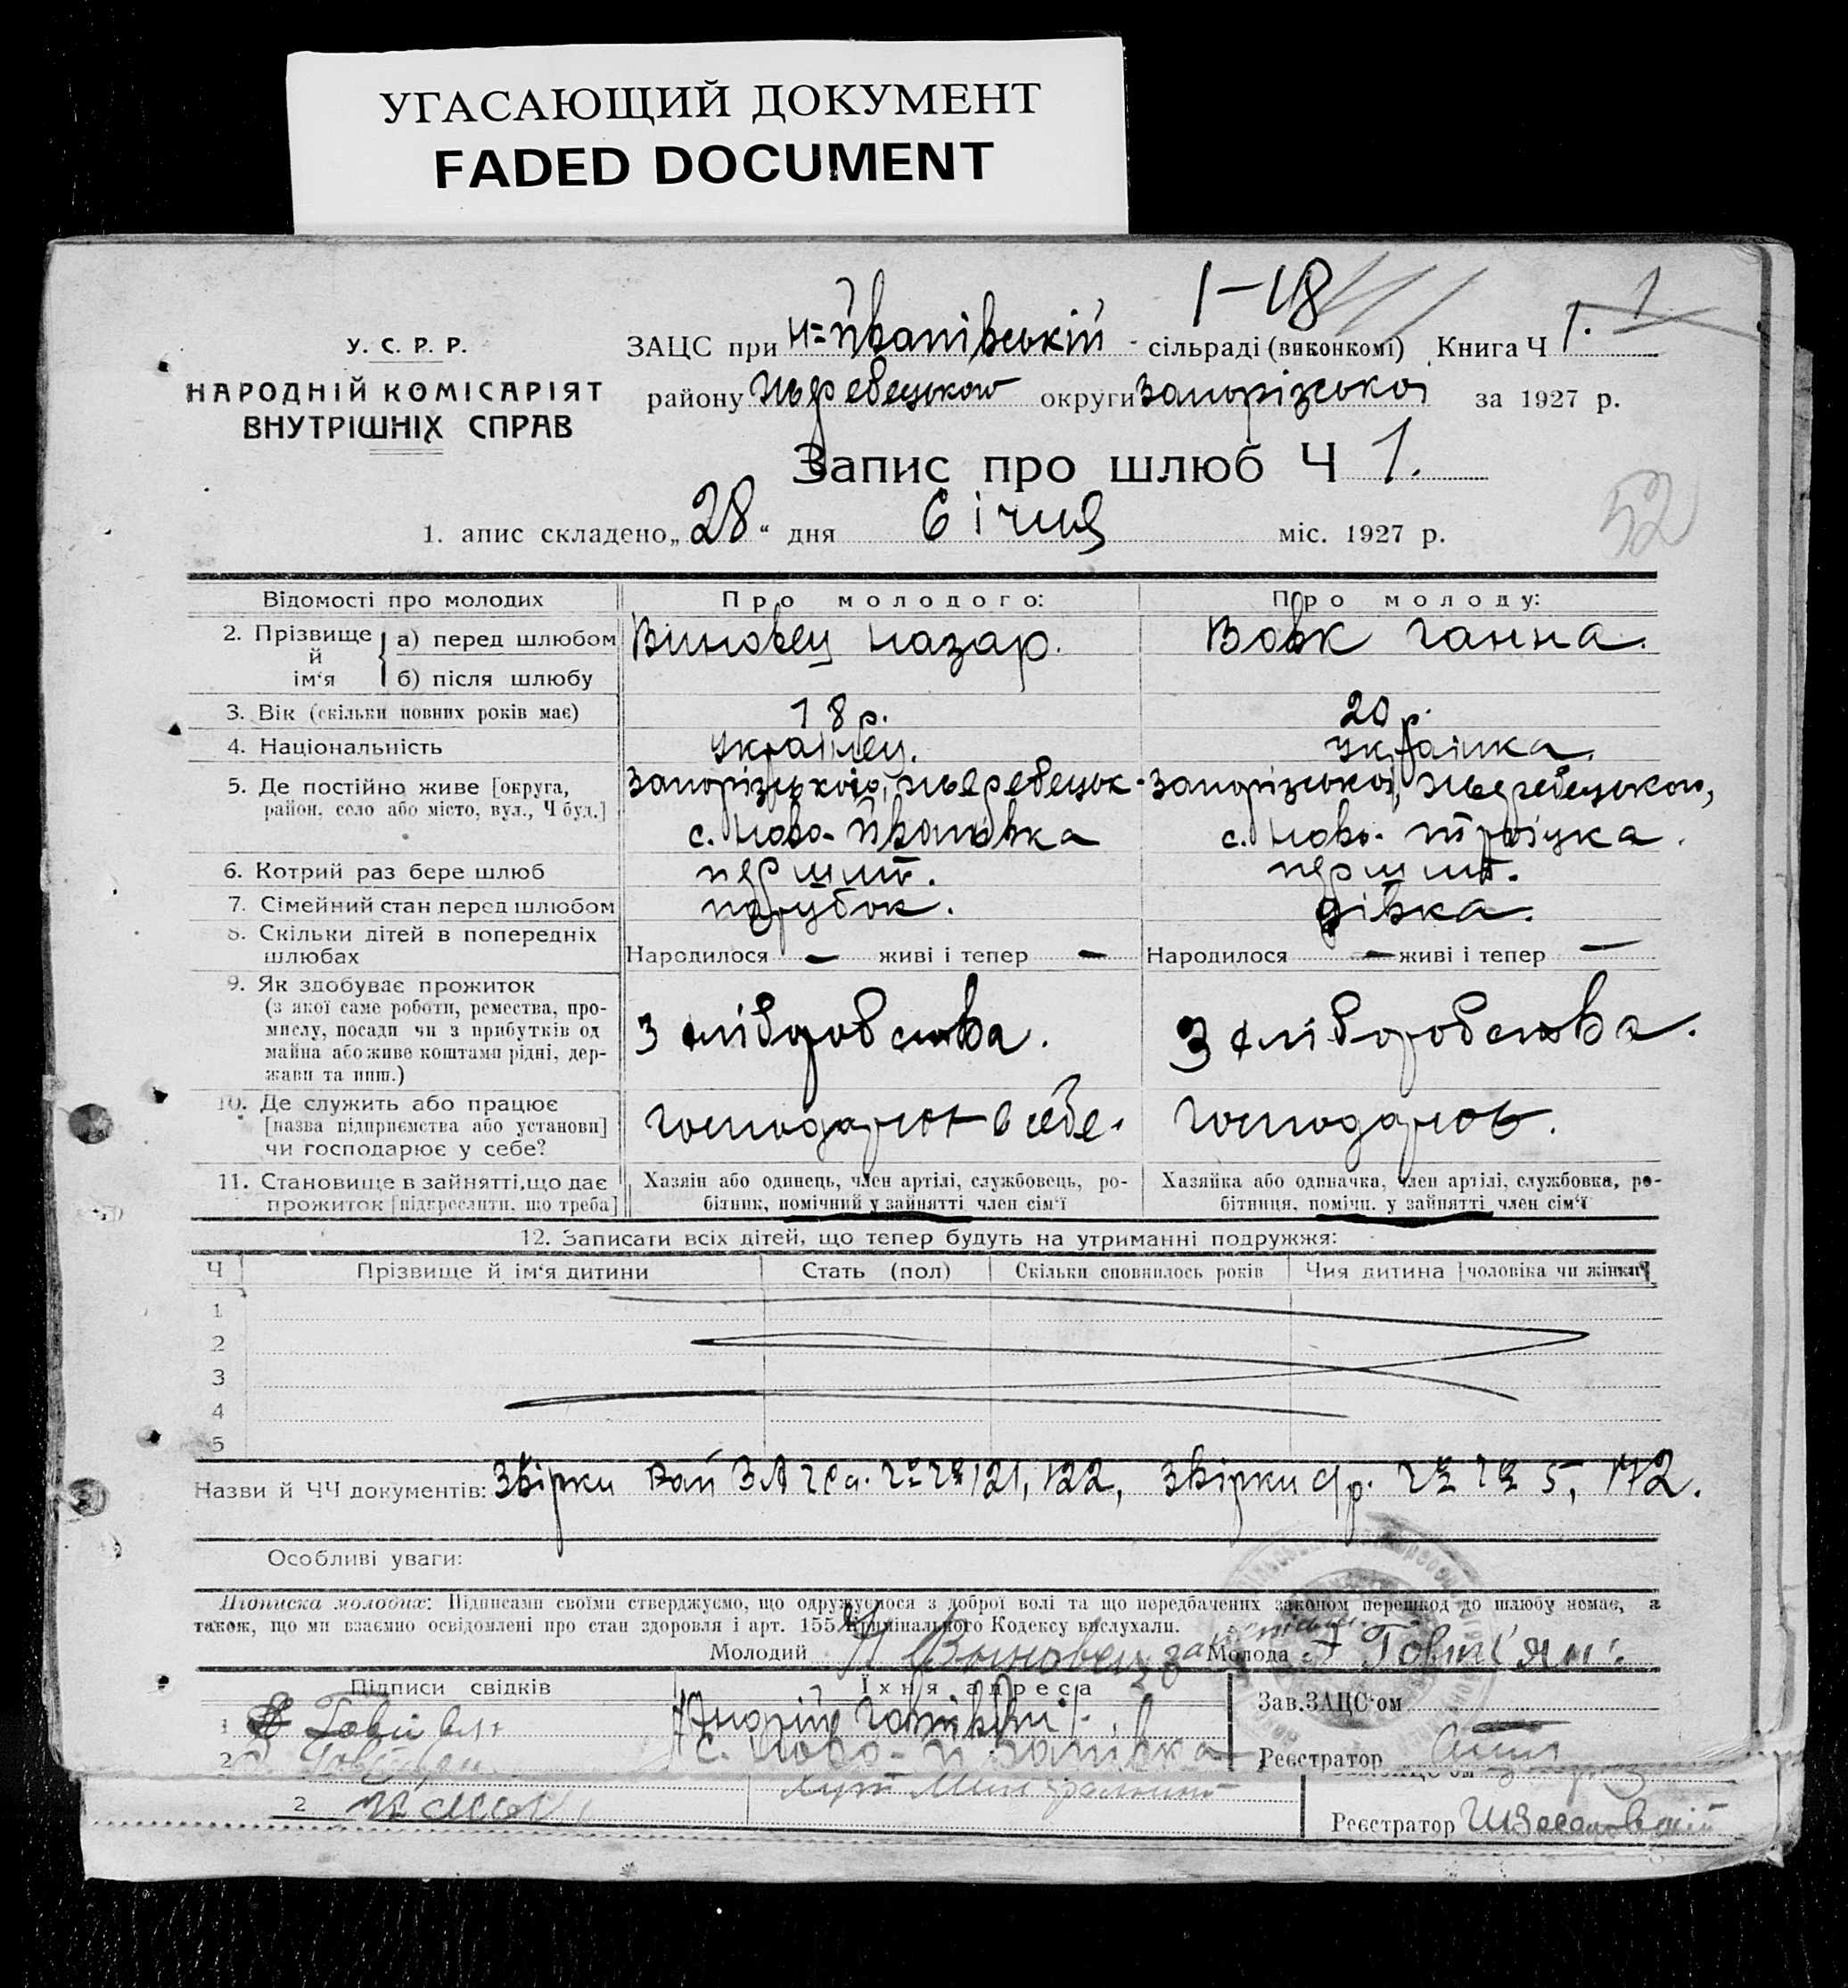 УГАСАЮЩИЙ ДОКУМЕНТ
FADED DOCUMENT
1-18
1
У. С. Р. Р.
НАРОДНІЙ КОМІСАРІЯТ
ВНУТРІШНІХ СПРАВ
ЗАЦС при Н=Йванівській сільраді (виконкомі) Книга Ч 1.
району Жеребецького округи Запорізької за 1927 р.
Запис про шлюб Ч 1.
52
1. апис складено „28“ дня Січня міс. 1927 р.
Відомості про молодих Про молодого: Про молоду:
2. Прізвище й ім‘я а) перед шлюбом Виновец Назар. Вовк Ганна.
б) після шлюбу
3. Вік (скільки повних років має) 18 р. 20 р.
4. Національність Українец. Українка.
5. Де постійно живе [округа, район, село або місто, вул., Ч буд.] Запорізького, Жеребецьк- Запорізької, Жеребецького,
с. Ново-Йванівка с. Ново-Троіцка.
6. Котрий раз бере шлюб перший. перший.
7. Сімейний стан перед шлюбом парубок. дівка.
8. Скільки дітей в попередніх шлюбах Народилося — живі і тепер — Народилося — живі і тепер —
9. Як здобуває прожиток
(з якої саме роботи, ремества, про-
мислу, посади чи з прибутків од
майна або живе коштами рідні, дер-
жави та инш.)
З хліборобства. З хліборобства.
10. Де служить або працює
[назва підприємства або установи]
чи господарює у себе?
господарює в себе. господарює.
11. Становище в зайнятті, що дає
прожиток [підкреслити, що треба]
Хазяін або одинець, член артілі, службовець, ро-
бітник, помічний у зайнятті член сім‘ї
Хазяйка або одиначка, член артілі, службовка, ро-
бітниця, помічн. у зайнятті член сім‘ї
12. Записати всіх дітей, що тепер будуть на утриманні подружжя:
Ч Прізвище й ім‘я дитини Стать (пол) Скільки сповнилось років Чия дитина [чоловіка чи жінки]
1
2
3
4
5
Назви й ЧЧ документів: Звірки Рай ЗАГСа. 121, 122, Звірки 5, 172.
Особливі уваги:
Підписка молодих: Підписами своїми стверджуємо, що одружуємося з доброї волі та що передбачених законом перешкод до шлюбу немає, а
також, що ми взаємно освідомлені про стан здоровля і арт. 155 Кримінального Кодексу вислухали.
Молодий Н Выновец за Молода
Підписи свідків Їхня адреса
Зав. ЗАЦС‘ом
1
с. Ново-Йванівка
2
Реєстратор
2
Реєстратор